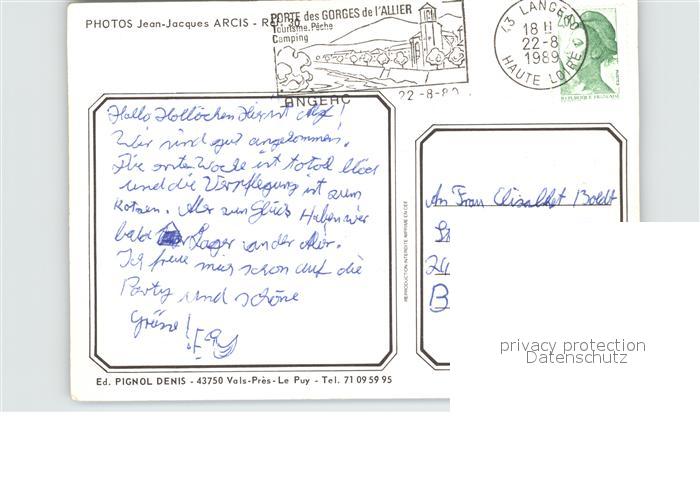 PHOTOS Jean-Jacques ARCIS - Réf. 36
PORTE des GORGES de l'ALLIER
Tourisme. Pêche
Camping
LANGEAC
22-8-89
43 LANGEAC
18 H
22-8
1989
HAUTE LOIRE
REPUBLIQUE FRANÇAISE
Hallo Hollöchen Hier ist
Wir sind gut angekommen.
Die erste Woche ist total blöd
und die Verpflegung ist zum
Kotzen. Aber zum Glück Haben wir
bald Lager an der
Ich freue mich schon auf die
Party und schöne
Grüsse!
REPRODUCTION INTERDITE IMPRIMÉ EN CEE
An Frau Elisabhet Boldt
24
B
privacy protection
Datenschutz
Ed. PIGNOL DENIS - 43750 Vals-Près-Le Puy - Tel. 71 09 59 95